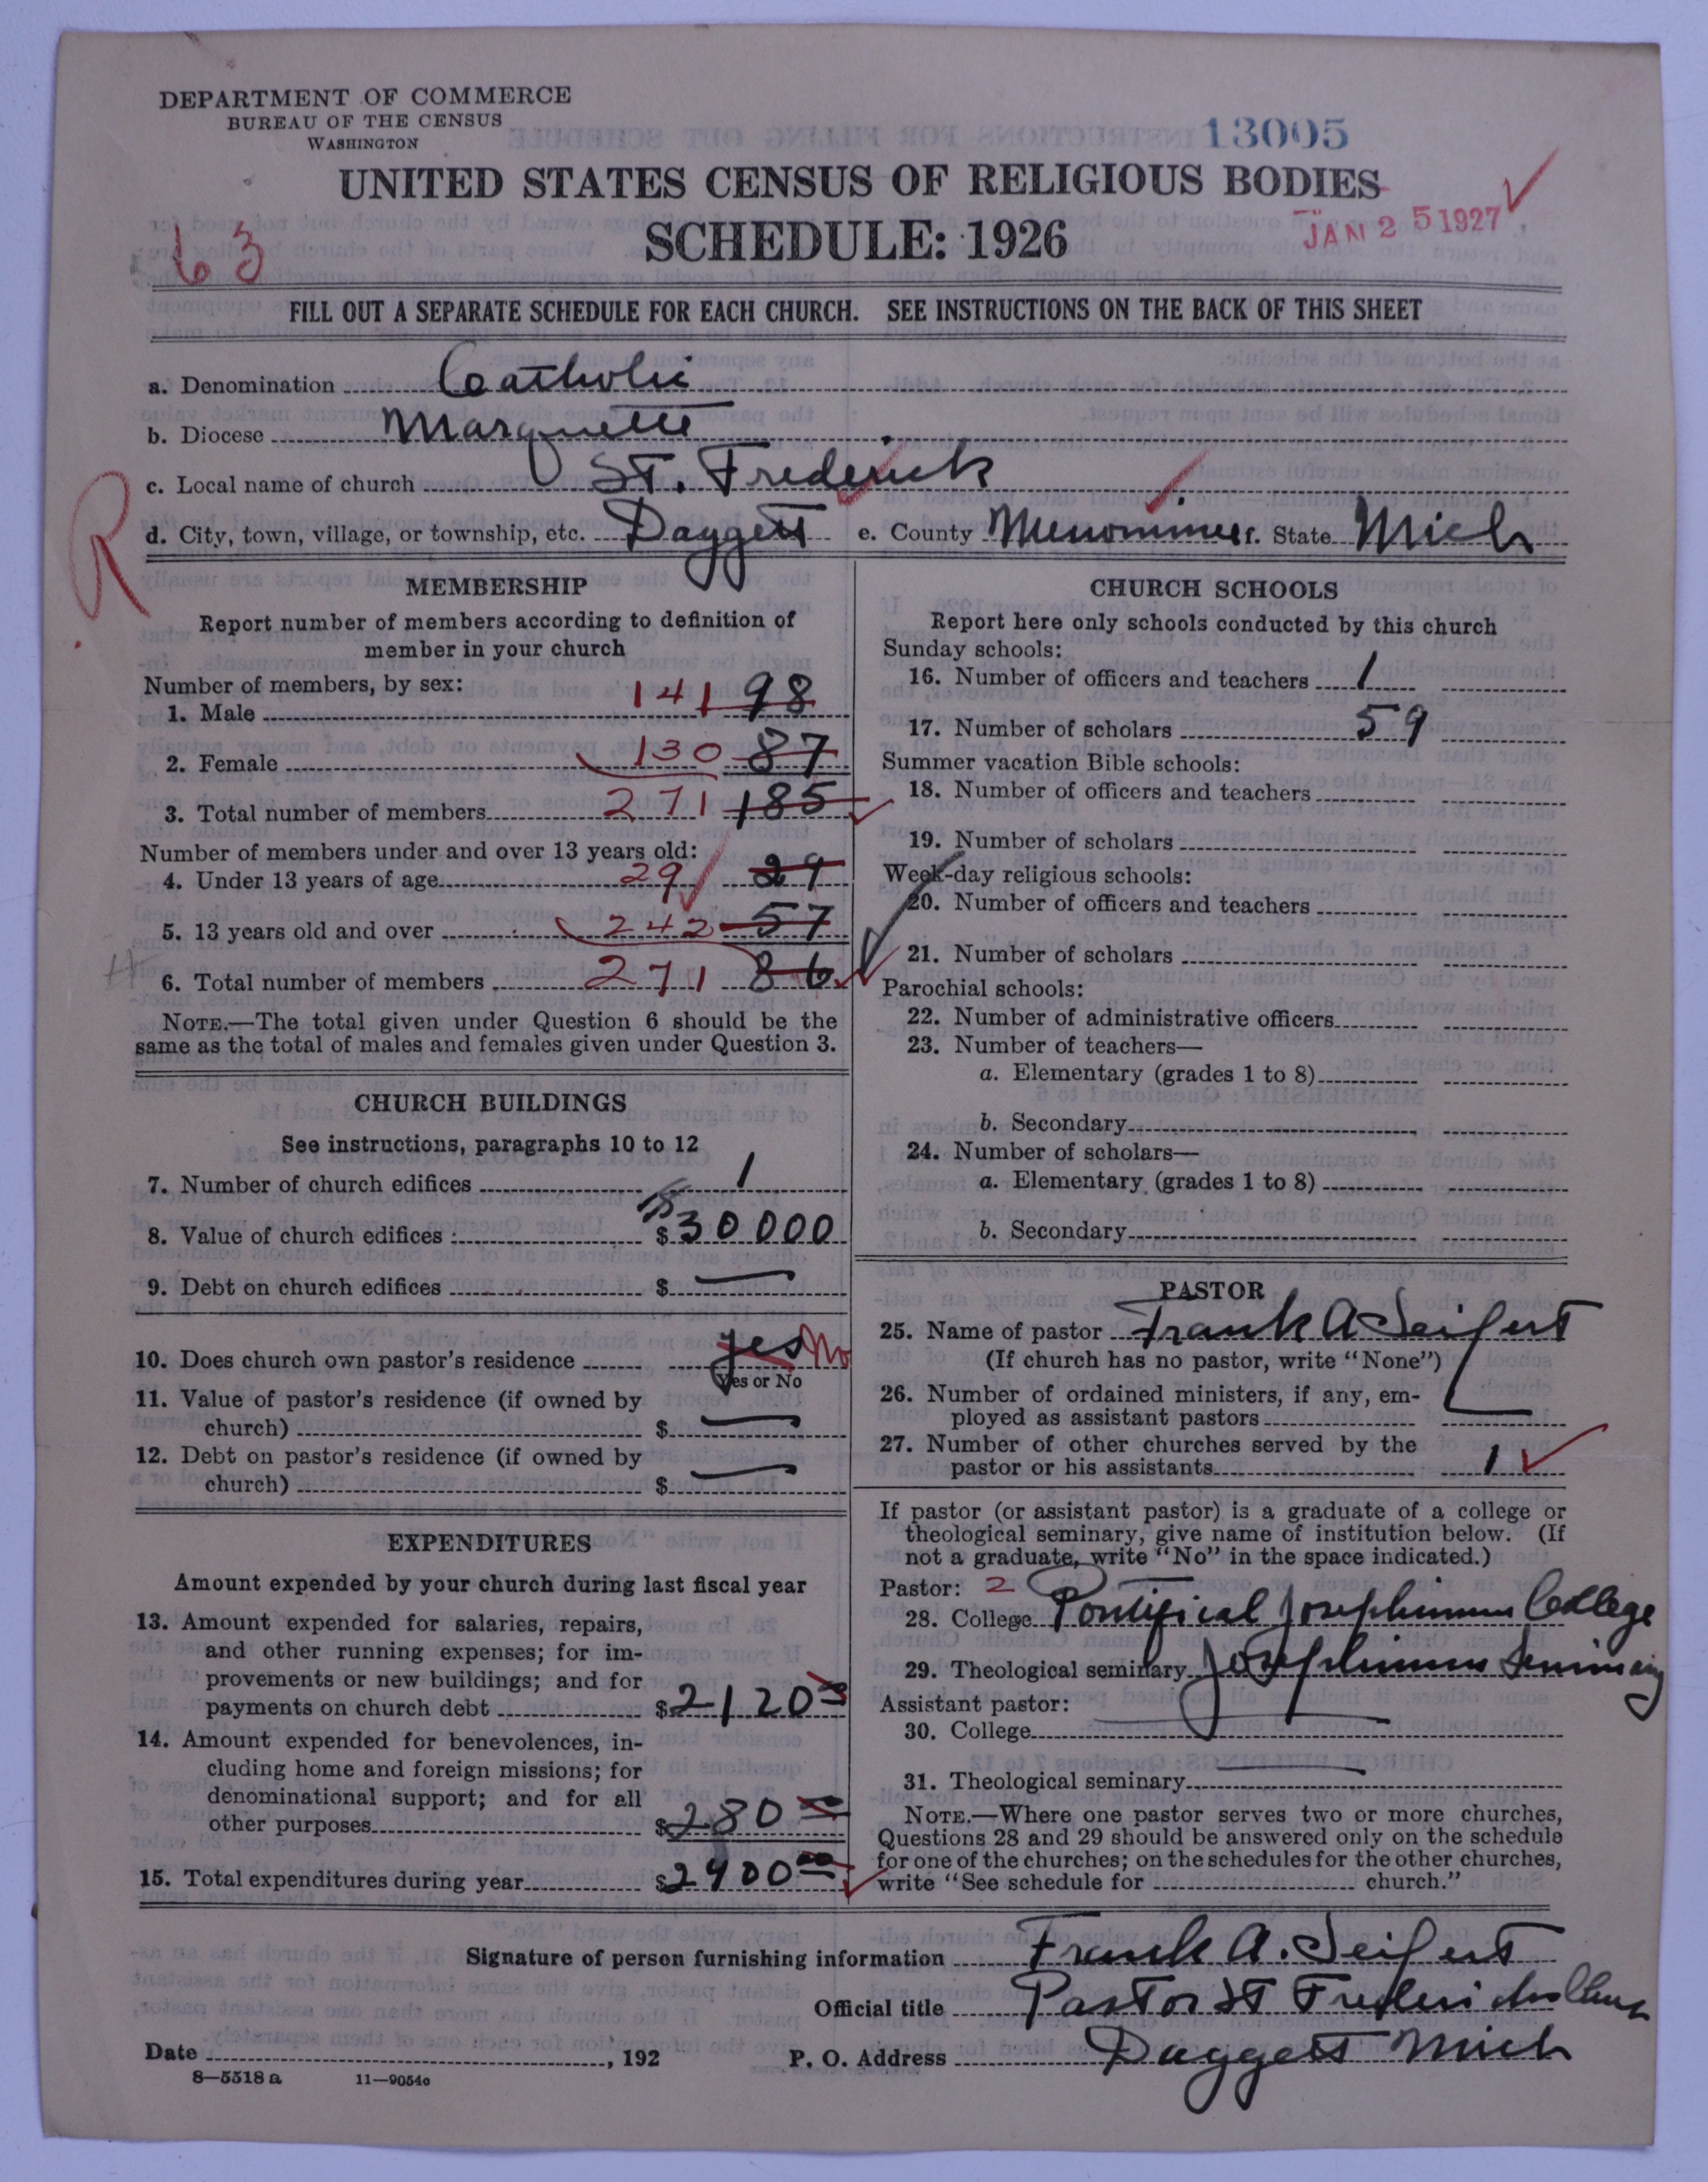 DEPARTMENT OF COMMERCE
BUREAU OF THE CENSUS
WASHINGTON
13005
UNITED STATES CENSUS OF RELIGIOUS BODIES
SCHEDULE: 1926
JAN 25 1927
63
FILL OUT A SEPARATE SCHEDULE FOR EACH CHURCH. SEE INSTRUCTIONS ON THE BACK OF THIS SHEET
a. Denomination Catholic
b. Diocese Marquette
c. Local name of church St. Frederick
d. City, town, village, or township, etc. Daggett e. County Menominee f. State Mich
R
MEMBERSHIP
Report number of members according to definition of
member in your church
Number of members, by sex:
1. Male 141 98
2. Female 130 87
3. Total number of members 271 185
Number of members under and over 13 years old:
4. Under 13 years of age 29 29
5. 13 years old and over 242 57
6. Total number of members 271 86
NOTE.—The total given under Question 6 should be the
same as the total of males and females given under Question 3.
CHURCH BUILDINGS
See instructions, paragraphs 10 to 12
7. Number of church edifices 1
8. Value of church edifices $ 30000
9. Debt on church edifices $ —
10. Does church own pastor's residence yes No
Yes or No
11. Value of pastor's residence (if owned by
church) $ —
12. Debt on pastor's residence (if owned by
church) $ —
EXPENDITURES
Amount expended by your church during last fiscal year
13. Amount expended for salaries, repairs,
and other running expenses; for im-
provements or new buildings; and for
payments on church debt $2120
14. Amount expended for benevolences, in-
cluding home and foreign missions; for
denominational support; and for all
other purposes $280 00
15. Total expenditures during year $2400 00
CHURCH SCHOOLS
Report here only schools conducted by this church
Sunday schools:
16. Number of officers and teachers 1
17. Number of scholars 59
Summer vacation Bible schools:
18. Number of officers and teachers
19. Number of scholars
Week-day religious schools:
20. Number of officers and teachers
21. Number of scholars
Parochial schools:
22. Number of administrative officers
23. Number of teachers—
a. Elementary (grades 1 to 8)
b. Secondary
24. Number of scholars—
a. Elementary (grades 1 to 8)
b. Secondary
PASTOR
25. Name of pastor Frank A Seifert
(If church has no pastor, write "None")
26. Number of ordained ministers, if any, em-
ployed as assistant pastors
27. Number of other churches served by the
pastor or his assistants 1
If pastor (or assistant pastor) is a graduate of a college or
theological seminary, give name of institution below. (If
not a graduate, write "No" in the space indicated.)
Pastor: 2
28. College Pontifical Josephinum College
29. Theological seminary Josephinum Seminary
Assistant pastor:
30. College
31. Theological seminary
NOTE.—Where one pastor serves two or more churches,
Questions 28 and 29 should be answered only on the schedule
for one of the churches; on the schedules for the other churches,
write "See schedule for church."
Signature of person furnishing information Frank A. Seifert
Official title Pastor St Fredericks Church
Date , 192 P. O. Address Daggett Mich
8—5518 a 11—9054c